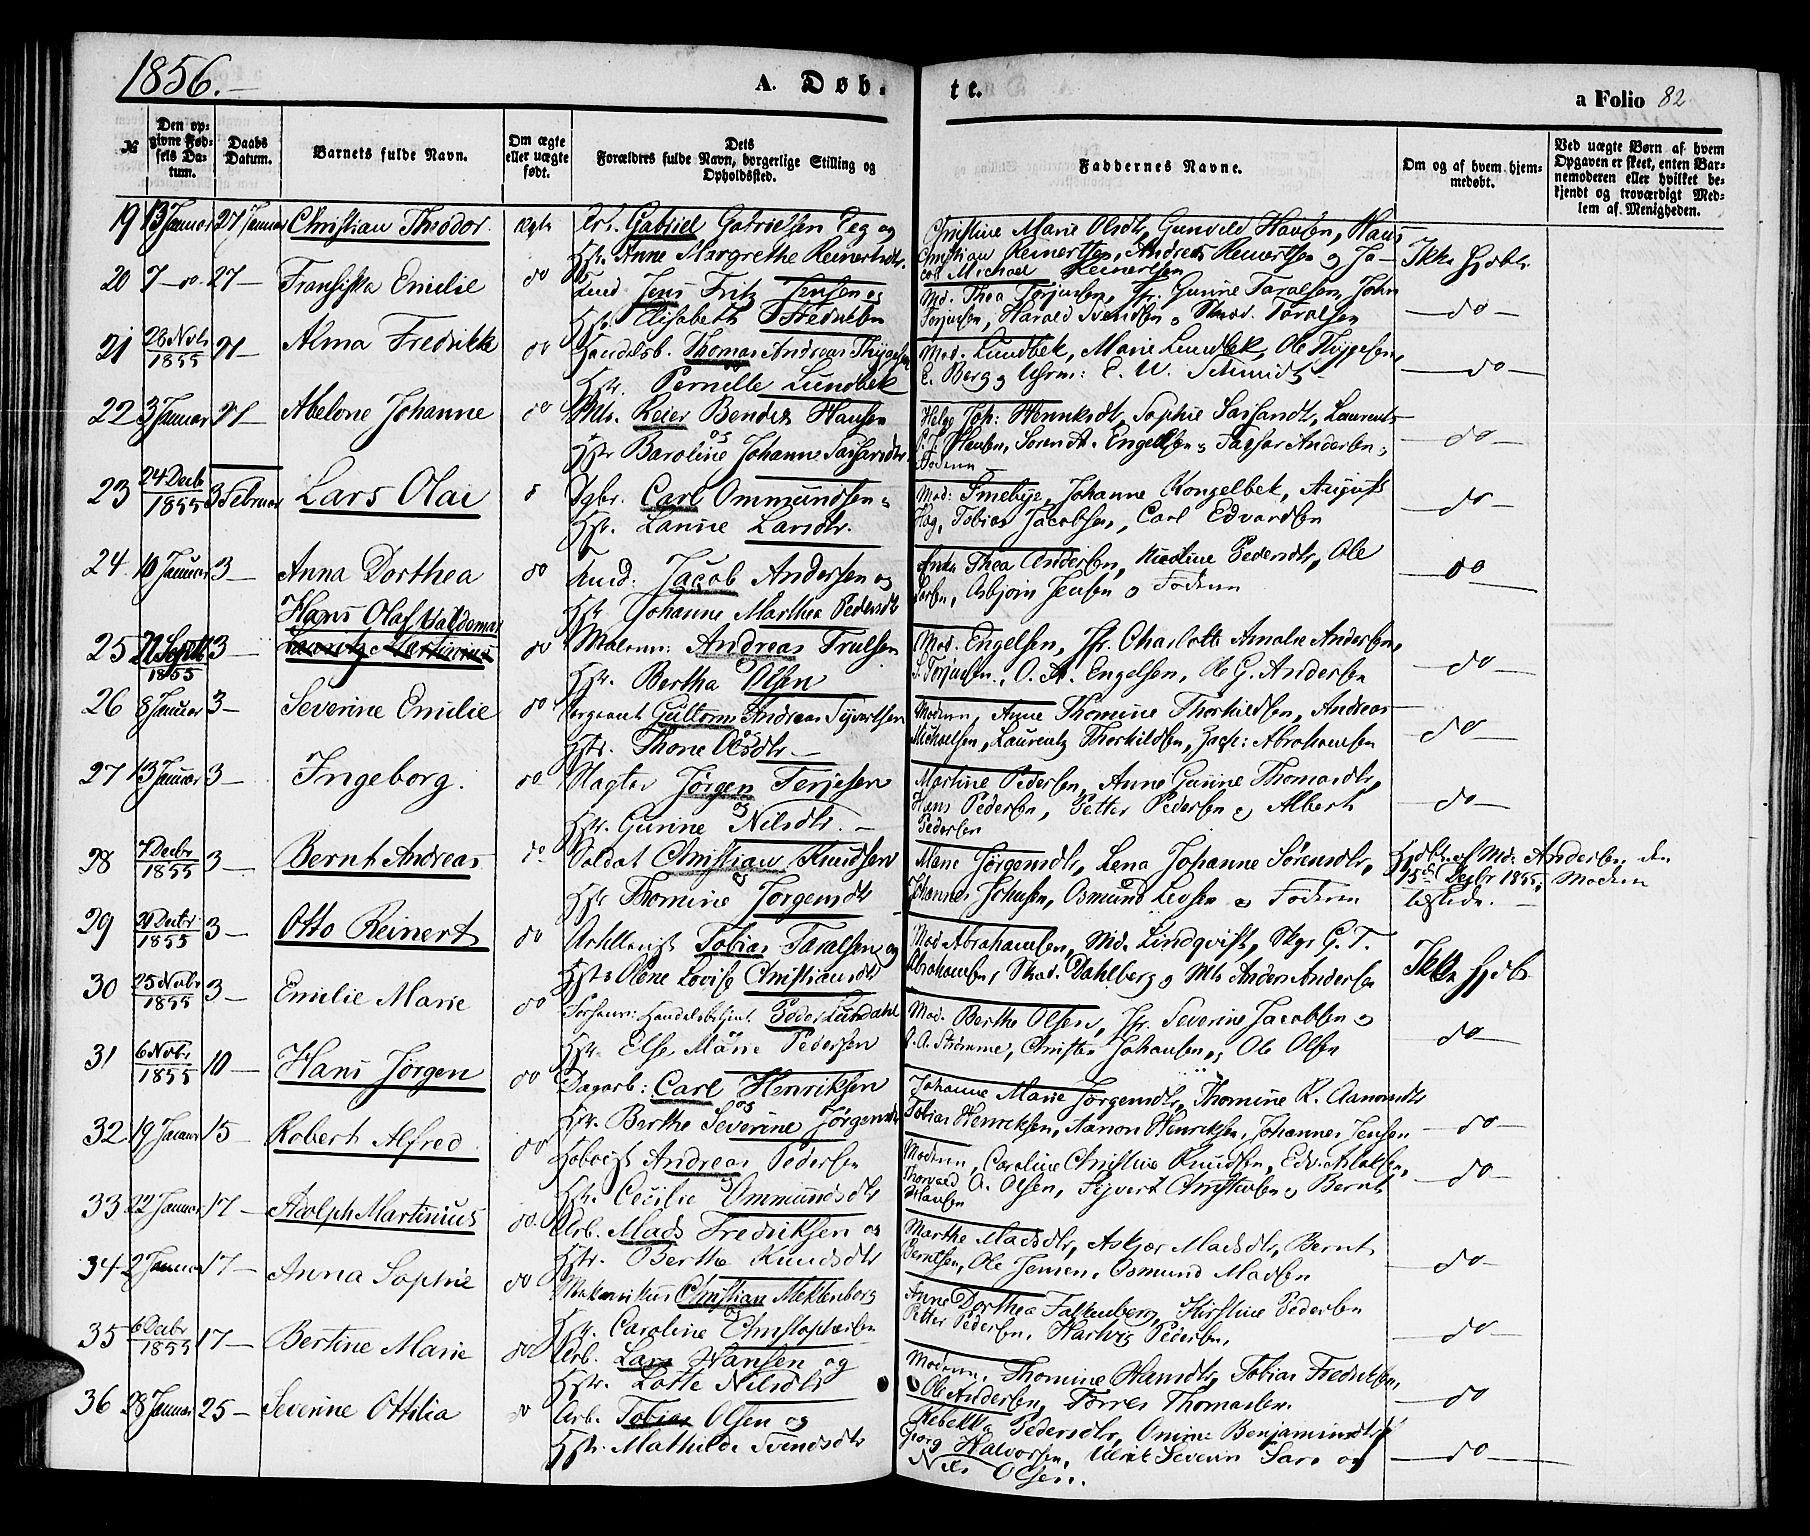 1856.
A. Døb-
te.
a Folio 82
№
Den op-
givne Fød-
sels Da-
tum.
Daabs
Datum.
Barnets fulde Navn.
Om ægte
eller uægte
født.
Dets
Forældres fulde Navn, borgerlige Stilling og
Opholdssted.
Faddernes Navne.
Om og af hvem hjem-
medøbt.
Ved uægte Børn af hvem
Opgaven er skeet, enten Bar-
nemoderen eller hvilket be-
kjendt og troværdigt Med-
lem af Menigheden.
19 13 Januar 27 Januar Christian Theodor Ægte Arb. Gabriel Gabrielsen Teg og
Hstr. Anne Margrethe Reinertsdtr.
Christine Marie Olsdtr, Gunvild Hansen, Hans
Christian Reinertsen, Andreas Reinertsen og Ja-
cob Michael Reinertsen
Ikke Hjdbt.
20 7 do 27 Fransiska Emilie do Jens Fritz Jensen og
Hstr. Elisabeth
Mad. Thea Terjusen, Jfr. Gunine Taralsen, John
Terjusen, Harald Svendsen, Skrd. Taralsen
do
21 28 Nvbr 1855 27 Alma Fredrikke do Handelsb. Thomas Andreas Thygesen
og
Hstr. Pernelle Lundbek
Mad. Lundbek, Marie Lundbek, Ole Thygesen,
E. Berg og Uhrm: E. W. Schmidt
do
22 3 Januar 27 Abelone Johanne do Reier Bendix Hansen
og
Hstr Baroline Johanne
Helge Jsp: Henriksdtr, Sophie Laurents
Hansen, Søren A. Engelsen, Andersen
Faderen
do
23 24 Decbr 1855 3 Februar Lars Olai d Dgbr. Carl Ommundsen
Hstr. Lanine Larsdtr.
Mad: Smebye, Johanne Kongelbek, August
Hag, Tobias Jacobsen, Carl Edvardsen
do
24 10 Januar 3 Anna Dorthea do Jacob Andersen og
Hstr Johanne Marthea Pedersdtr
Thea Andersen, Nicoline Pedersdtr, Ole
Larsen, Asbjørn Jensen og Faderen
do
Hans Olaf Valdemar
25 Septbr 1855 3 Lauritz Martinius do Malerm: Andreas Trulsen
Hstr. Bertha Olsen
Mad. Engelsen, Jfr. Charlotte Amalie Andersen,
S. Terjusen, O. A. Engelsen, Ole G. Andersen
do
26 8 Januar 3 Severine Emilie do Sergeant Guttorm Andreas Syvertsen
og
Hstr. Thone Olsdtr
Moderen, Anne Thomine Thorkildsen, Andreas
Michaelsen, Laurentz Thorkildsen, Jacb: Abrahamsen
do
27 13 Januar 3 Ingeborg. do Slagter Jørgen Terjesen
og
Hstr. Gurine Nilsdtr.
Martine Pedersen, Anne Gunine Thomasdtr,
Hans Pedersen, Petter Pedersen og Albert
Pedersen
do
28 7 Decbr 1855 3 Bernt Andreas do Soldat Christian Knudsen
og
Hstr. Thomine Jørgensdtr
Mane Jørgensdtr, Lena Johanne Sørensdtr,
Johannes Johnsen, Osmund Leosen og Faderen
Hjdbt. af Md. Andersen den
15de Decbr 1855, Moderen
tilstede.
29 20 Decbr 1855 3 Otto Reinert do Tobias Taralsen og
Hstr Olene Lovise Christiansdtr
Mad Abrahamsen, Md. Lindqvist, Skgr G. T.
Abrahamsen, Skrd. Dahlberg og Mtr Anders Andersen
Ikke Hjdbt
30 25 Novbr 1855 3 Emilie Marie do Forhenv: Handelsbetjent Peder Lundahl
og
Hstr. Else Marie Pedersen
Mad. Berthe Olsen, Jfr. Severine Jacobsen og
O. A. Strømme, Christen Johansen og Ole Olsen
do
31 6 Novbr 1855 10 Hans Jørgen do Dagarb: Carl Henriksen
og
Hstr. Berthe Severine Jørgensdtr
Johanne Marie Jørgensdtr, Thomine K. Aanonsdtr
Tobias Henriksen, Aanon Henriksen, Johannes Jensen
do
32 19 Januar 15 Robert Alfred do Andreas Pedersen
og
Hstr. Cecilie Ommundsdtr
Moderen, Caroline Christine Knudsen, Edv. Aslaksen,
Thorvald A. Olsen, Syvert Christensen og Bernt
Hansen
do
33 22 Januar 17 Adolph Martinius do. Arb. Mads Fredriksen og
Hstr. Berthe Knudsdtr
Marthe Madsdtr, Askjær Madsdtr, Bernt
Berntsen, Ole Jensen, Osmund Madsen
do
34 2 Januar 17 Anna Sophie do Mekanikus Christian Meklenborg
og
Hstr. Caroline Christophersen
Anne Dorthea Falkenberg, Kirstine Pedersen
Petter Pedersen, Hartvig Pedersen,
do
35 6 Decbr 1855 17 Bertine Marie do Arb. Lars Hansen og
Hstr. Lotte Nilsdtr
Moderen, Thomine Hansdtr, Tobias Fredriksen
Ole Andersen, Torres Thomassen.
do
36 28 Januar 25 Severine Ottilia do Arb. Tobias Olsen og
Hstr. Mathilde Svendsdtr
Rebekka Pedersdtr, Benjaminsdtr,
Georg Halvorsen, Ulrik Severin Lars og
Nils Olsen.
do